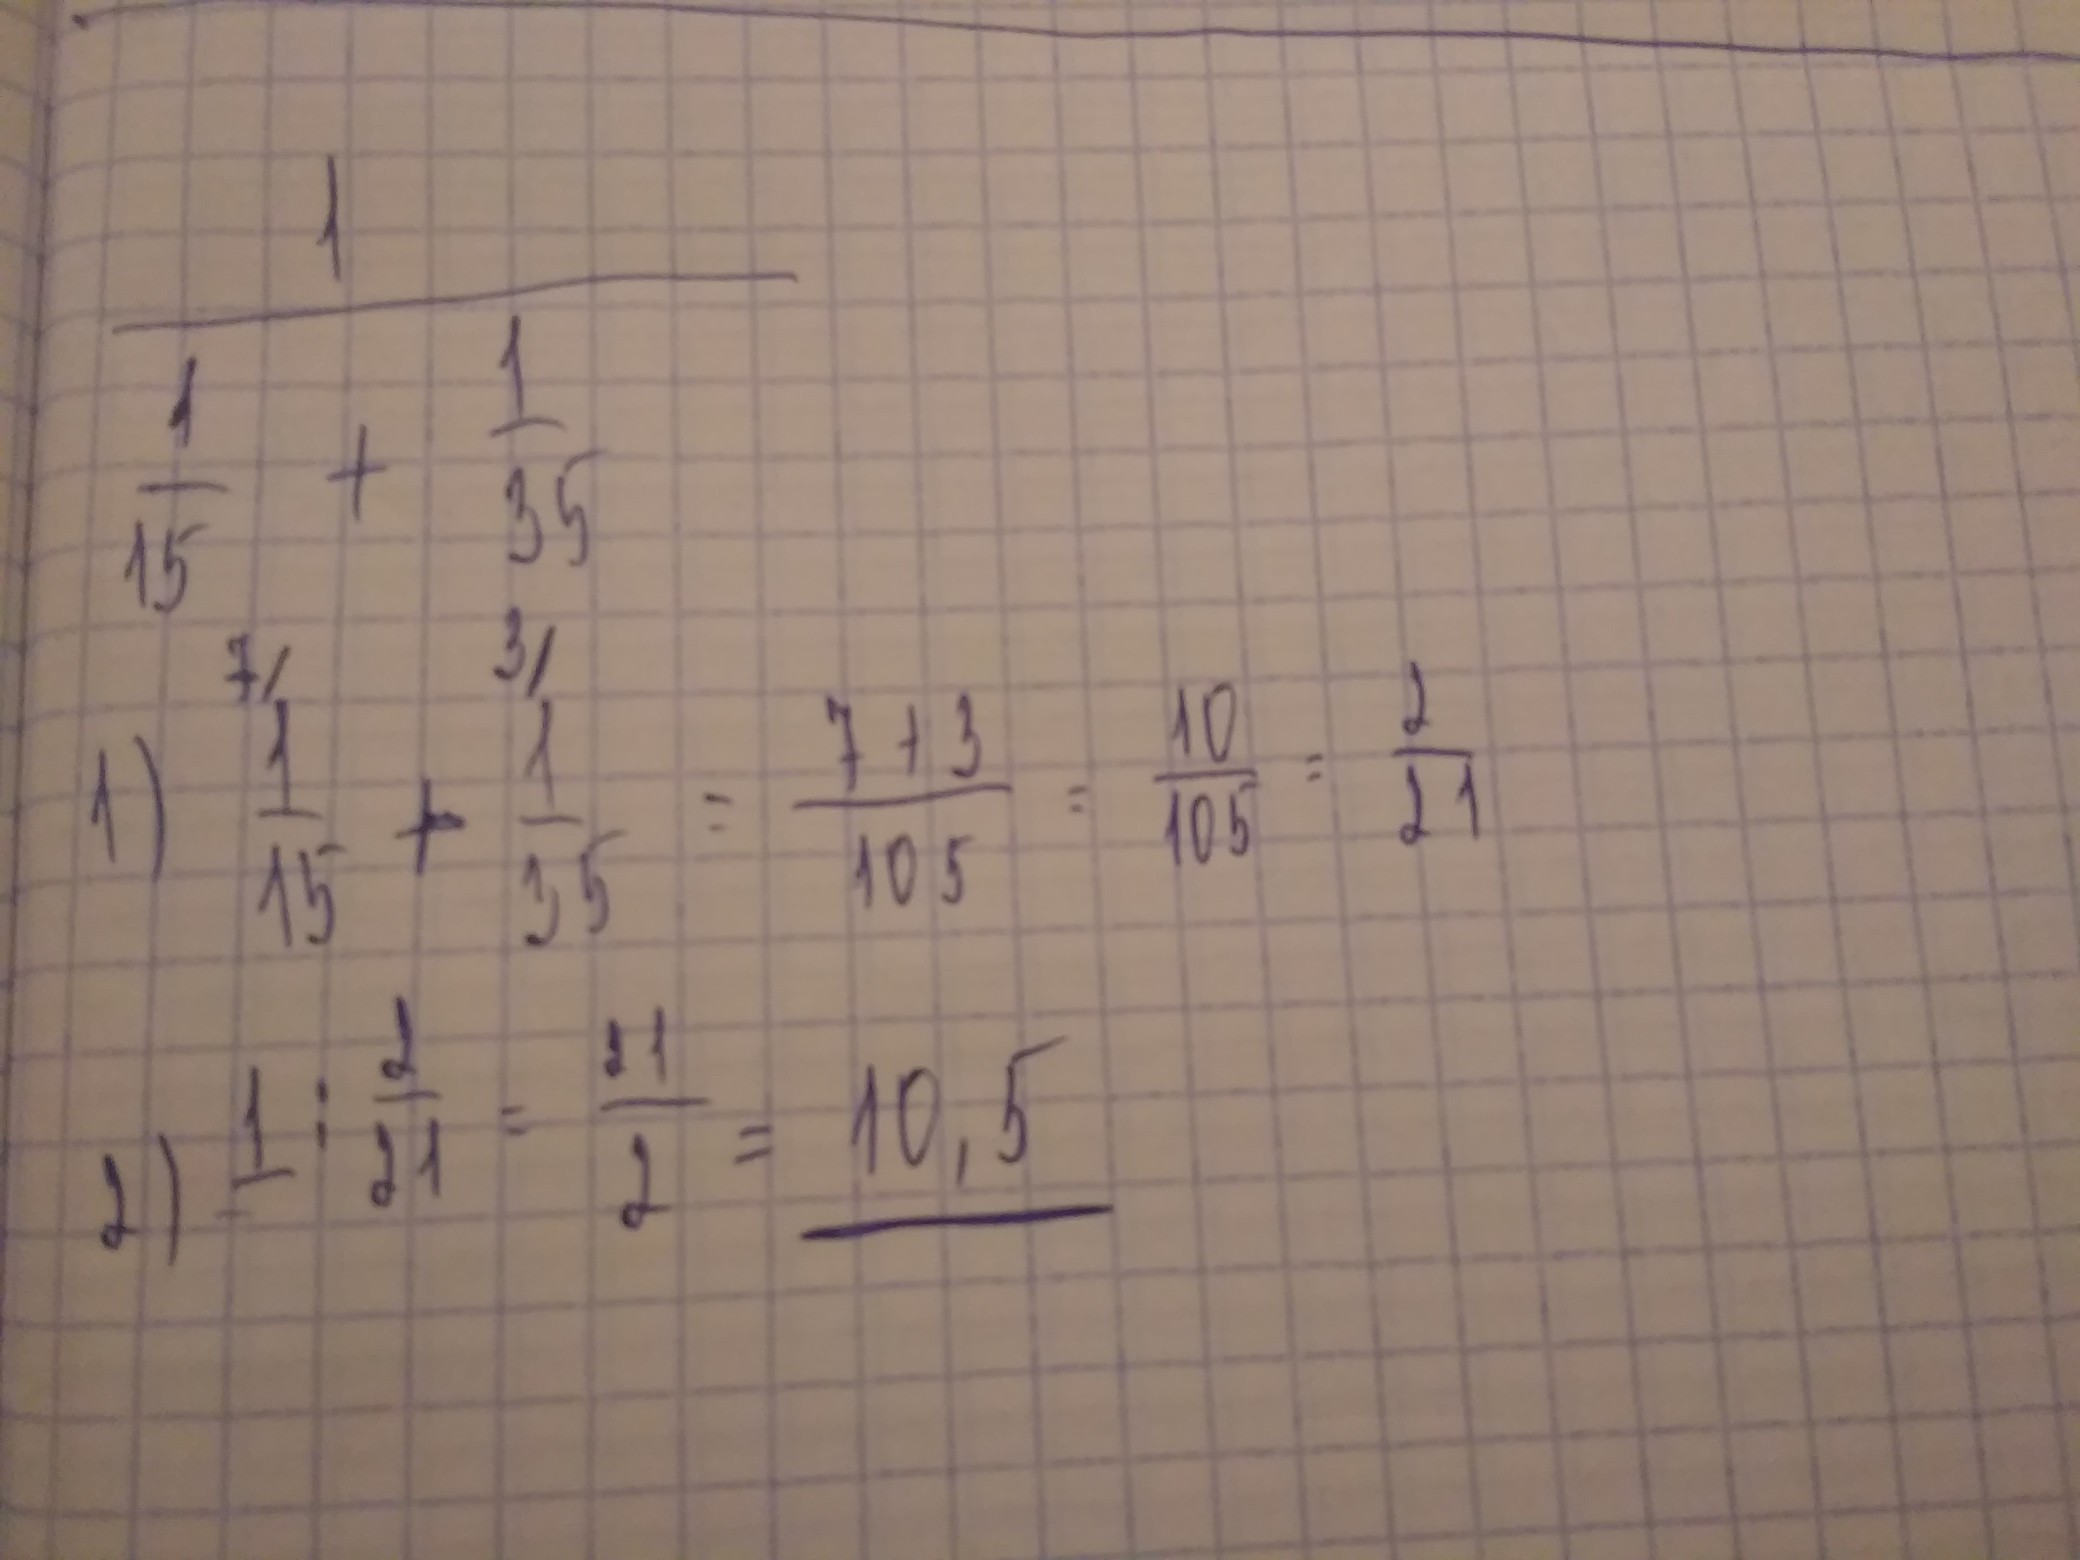 1
1/15 + 1/35
7/ 3/
1) 1/15 + 1/35 = 7+3/105 = 10/105 = 2/21
2) 1 : 2/21 = 21/2 = 10,5